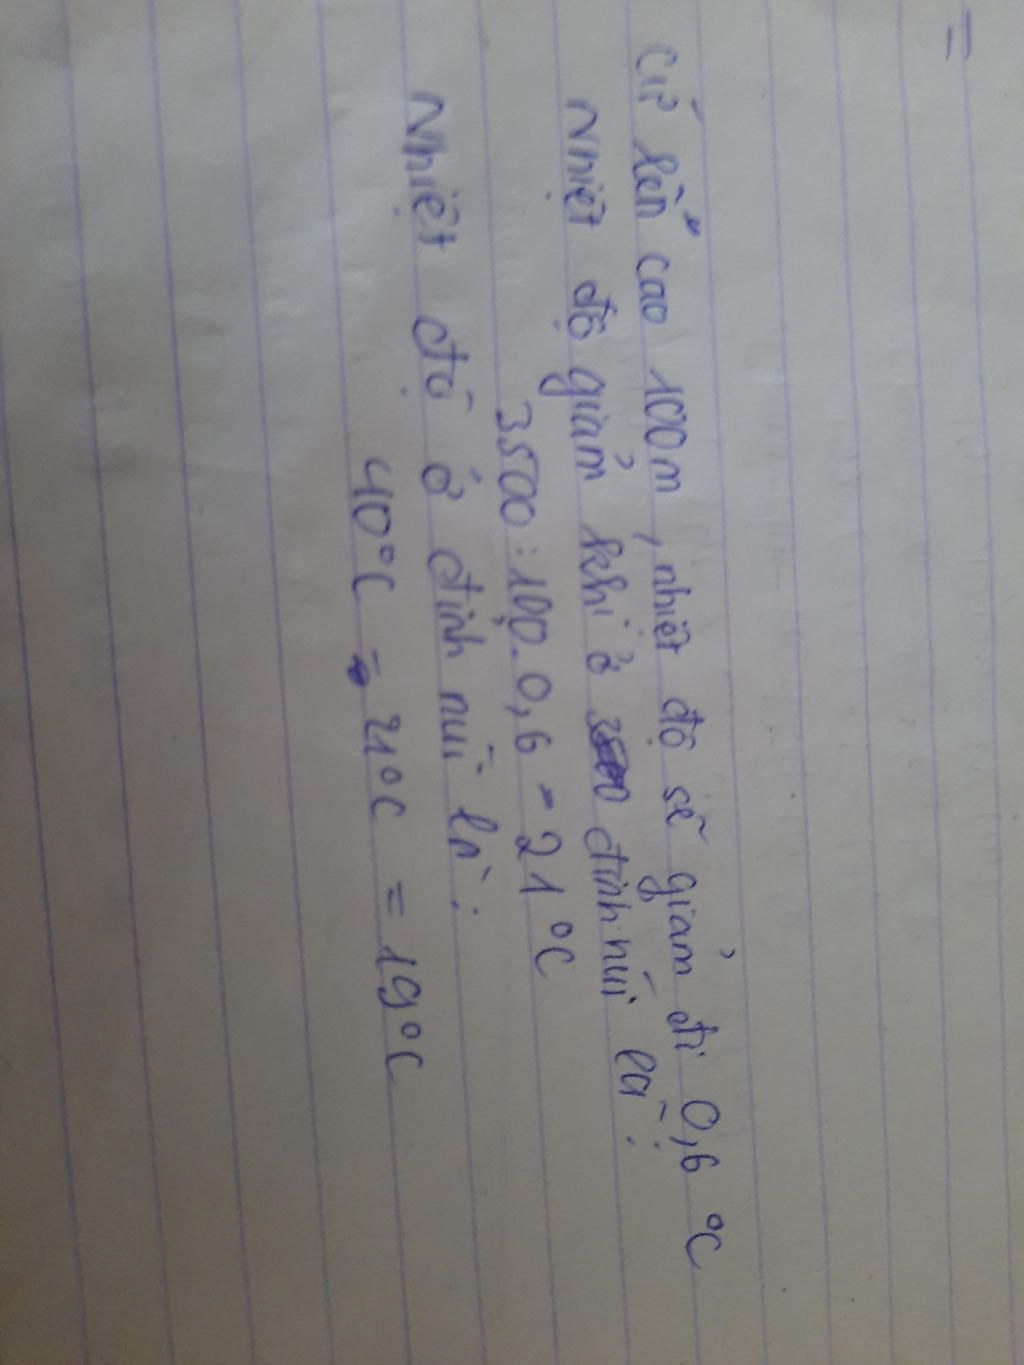 =
Cứ lên cao 100m, nhiệt độ sẽ giảm đi 0,6 °C
Nhiệt độ giảm khi ở đỉnh núi là :
3500 : 100 . 0,6 = 21 °C
Nhiệt độ ở đỉnh núi là :
40°C - 21°C = 19°C